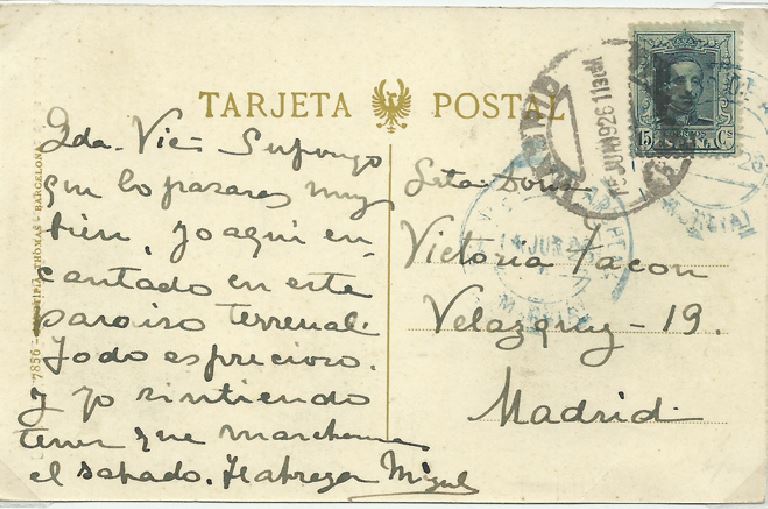 TARJETA POSTAL
Qda. Vic= Supongo
que lo pasaras muy
bien, yo aqui en=
cantado en este
paraiso terrenal.
Todo es precioso.
Y yo sintiendo
tener que marcharme
el sabado. Te abraza Miguel
Srta. Doña
Victoria Tacon
Velazquez - 19.
Madrid.
15 CORREOS Cs
ESPAÑA
MADRID
JUN 1926
14 JUN 26
7856 - THOMAS - BARCELONA